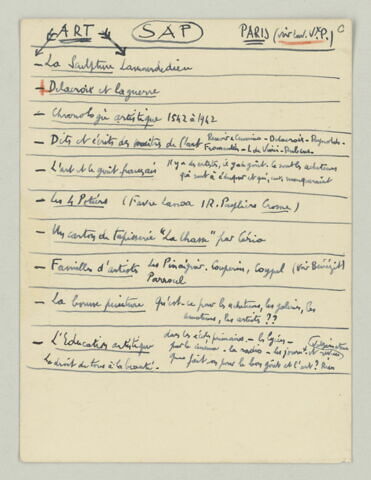 ART SAP PARIS (voir Inv. V.P.) C
- La Sculpture Languedocienne
- Delacroix et la guerre
- Chronologie artistique 1542 à 1942
- Dits et écrits des maîtres de l'art Cennino - Delacroix - Reynolds -
Fromentin - L. de Vinci -
- L'art et le goût français Il y a des artistes, il y a du goût. Ce sont les acheteurs
qui sont à éduquer et qui, eux, manqueraient
- Les 4 Potiers (Favre Lanoa / R.
- Un carton de tapisserie "La Chasse" par
- Familles d'artistes Les Couperin, Coypel (voir Bénézit)
Parrocel
- La bonne peinture qu'est-ce pour les acheteurs, les galeries, les
amateurs, les artistes ??
- L'Education artistique dans les écoles primaires - les lycées -
par le cinéma - la radio - les journaux et
Le droit de tous à la beauté. Que fait-on pour le bon goût et l'art? Rien